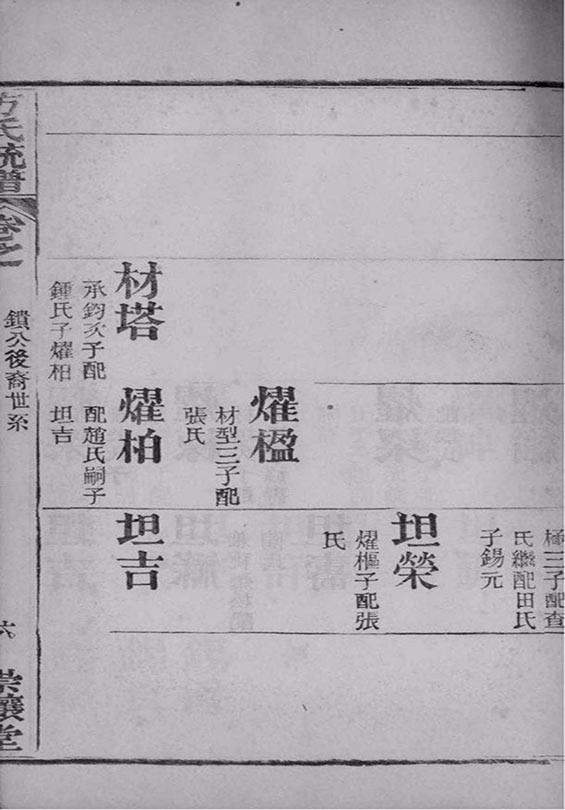 極三子配查
氏繼配田氏
子錫元
坦榮
燿樞子配張
氏
燿楹
材型三子配
張氏
材塔
承鈞次子配
鍾氏子燿柏
燿柏
配趙氏嗣子
坦吉
坦吉
方氏統譜
卷之
鎖公後裔世系
六
堂